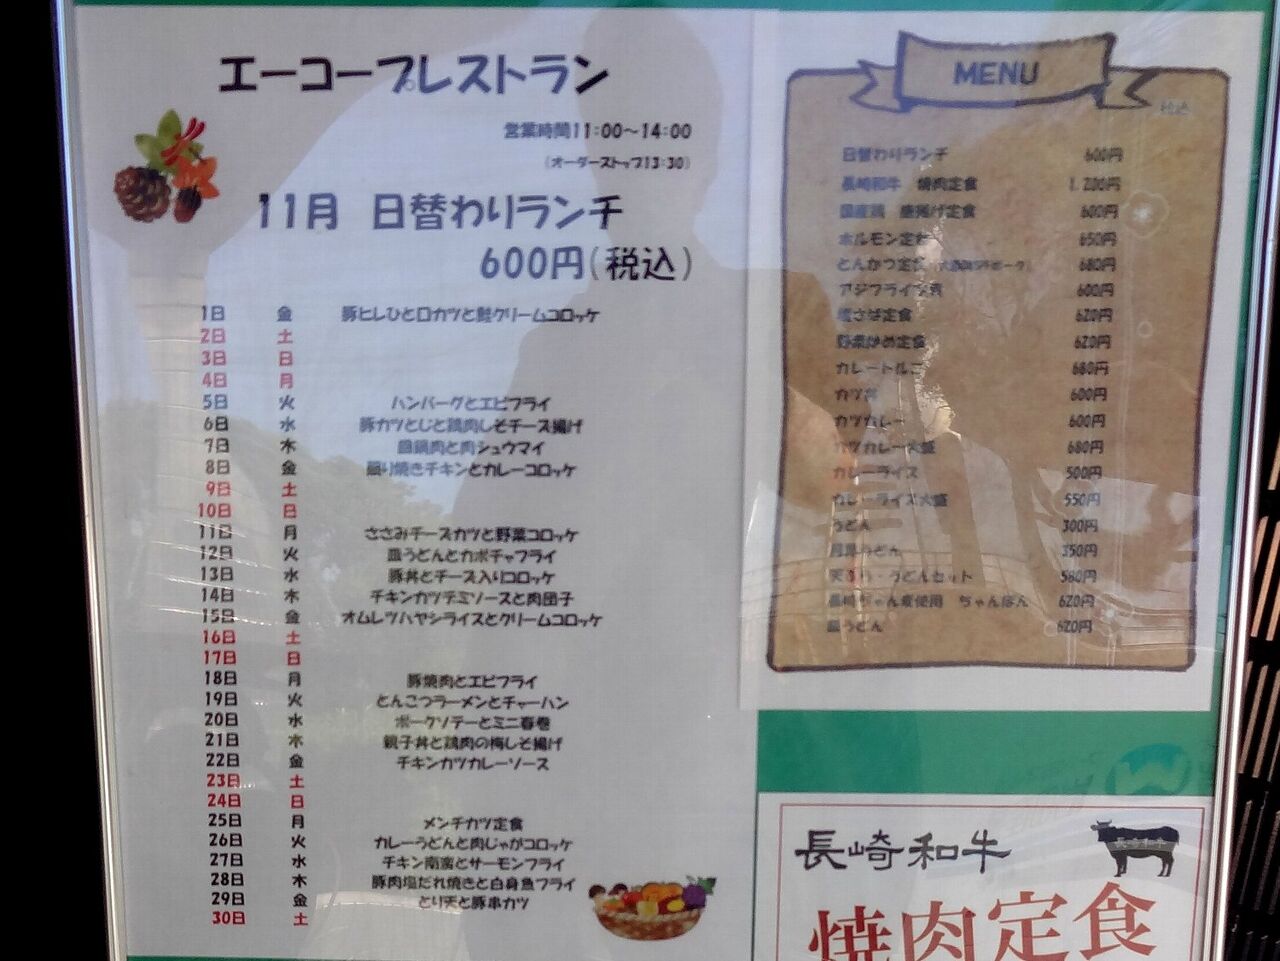 エーコープレストラン
営業時間11:00～14:00
(オーダーストップ13:30)
11月 日替わりランチ
600円(税込)
1日 金 豚ヒレひと口カツと鮭クリームコロッケ
2日 土
3日 日
4日 月
5日 火 ハンバーグとエビフライ
6日 水 豚カツとじと鶏肉しそチーズ揚げ
7日 木 回鍋肉と肉シュウマイ
8日 金 照り焼きチキンとカレーコロッケ
9日 土
10日 日
11日 月 ささみチーズカツと野菜コロッケ
12日 火 皿うどんとカボチャフライ
13日 水 豚丼とチーズ入りコロッケ
14日 木 チキンカツデミソースと肉団子
15日 金 オムレツハヤシライスとクリームコロッケ
16日 土
17日 日
18日 月 豚焼肉とエビフライ
19日 火 とんこつラーメンとチャーハン
20日 水 ポークソテーとミニ春巻
21日 木 親子丼と鶏肉の梅しそ揚げ
22日 金 チキンカツカレーソース
23日 土
24日 日
25日 月 メンチカツ定食
26日 火 カレーうどんと肉じゃがコロッケ
27日 水 チキン南蛮とサーモンフライ
28日 木 豚肉塩だれ焼きと白身魚フライ
29日 金 とり天と豚串カツ
30日 土
MENU
税込
日替わりランチ 600円
長崎和牛 焼肉定食 1,200円
国産鶏 唐揚げ定食 600円
ホルモン定食 650円
とんかつ定食 680円
アジフライ定食 600円
塩さば定食 620円
野菜炒め定食 620円
カレートルコ 680円
カツ丼 600円
カツカレー 600円
カツカレー大盛 680円
カレーライス 500円
カレーライス大盛 550円
うどん 300円
うどん 350円
うどんセット 580円
長崎ちゃん麦使用 ちゃんぽん 620円
皿うどん 620円
長崎和牛
焼肉定食